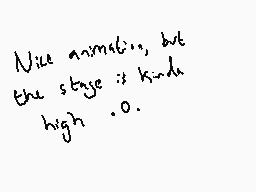 Nice animation, but
the stage is kinda
high .O.